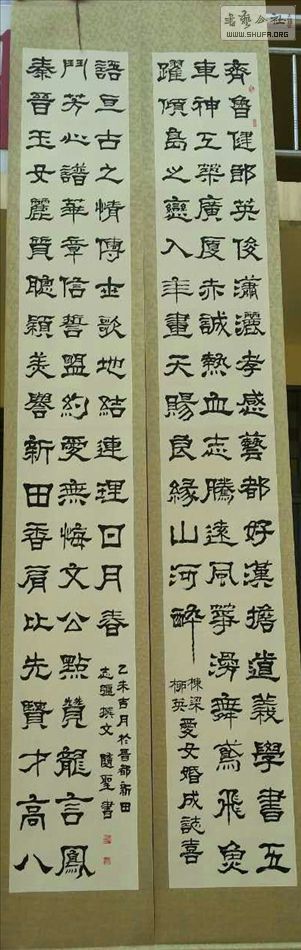 書藝公社
WWW.SHUFA.ORG
齊魯健郎英俊瀟灑孝感藝都好漢擔道義學書五
車神工築廣廈赤誠熱血志騰遠風箏舞鳶飛魚
躍傾島之戀入年畫天賜良緣山河醉
棟梁
柳英
愛女婚成誌喜
秦晉玉女麗質聰穎美譽新田香肩比先賢才高八
鬥芳心譜華章信誓盟約愛無悔文公點贊龍言鳳
語亘古之情傳世歌地結連理日月春
乙未吉月於晉都新田
志疆撰文
隨聖書